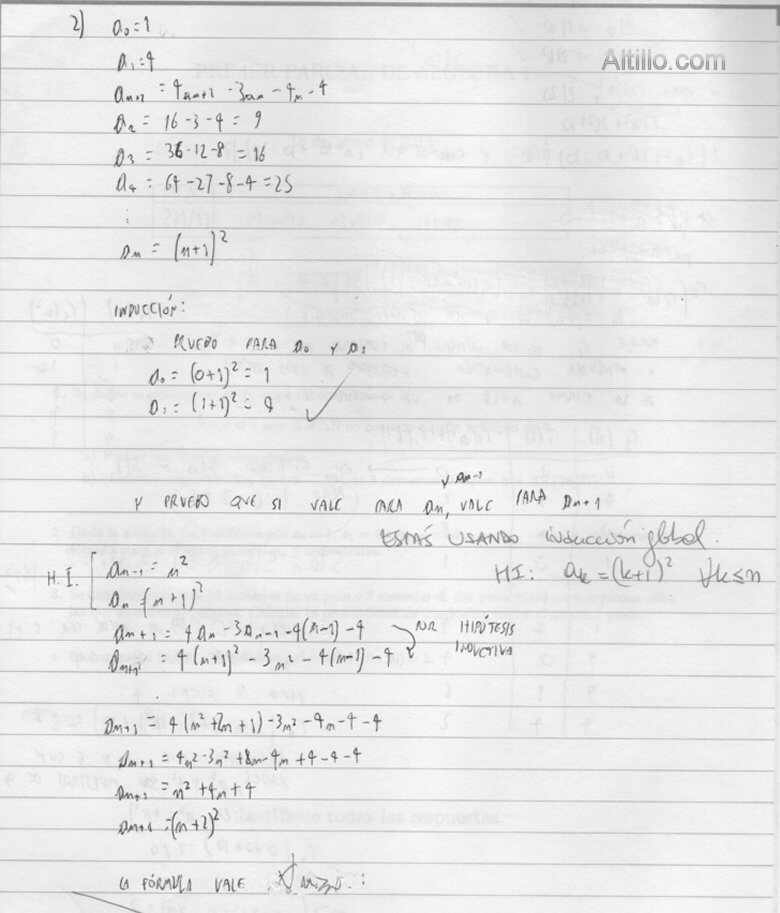 2) a₀=1
Altillo.com
a₁=4
aₙ₊₂ = 4aₙ₊₁ - 3aₙ - 4n - 4
a₂ = 16-3-4 = 9
a₃ = 36-12-8 = 16
a₄ = 64-27-8-4=25
⋮
aₙ = (n+1)²
INDUCCIÓN:
PRUEBO PARA a₀ Y a₁
a₀ = (0+1)² = 1
a₁ = (1+1)² = 4
Y aₙ₋₁
Y PRUEBO QUE SI VALE PARA aₙ, VALE PARA aₙ₊₁
ESTÁS USANDO inducción global.
H.I. [ aₙ₋₁ = n²
HI: aₖ=(k+1)² ∀k≤n
aₙ=(n+1)²
aₙ₊₁ = 4aₙ - 3aₙ₋₁ - 4(n-1) - 4
POR HIPÓTESIS
INDUCTIVA
aₙ₊₁ = 4(n+1)² - 3n² - 4(n-1) - 4
aₙ₊₁ = 4(n²+2n+1) - 3n² - 4n - 4 - 4
aₙ₊₁ = 4n²-3n²+8n-4n+4-4-4
aₙ₊₁ = n²+4n+4
aₙ₊₁ =(n+2)²
LA FÓRMULA VALE